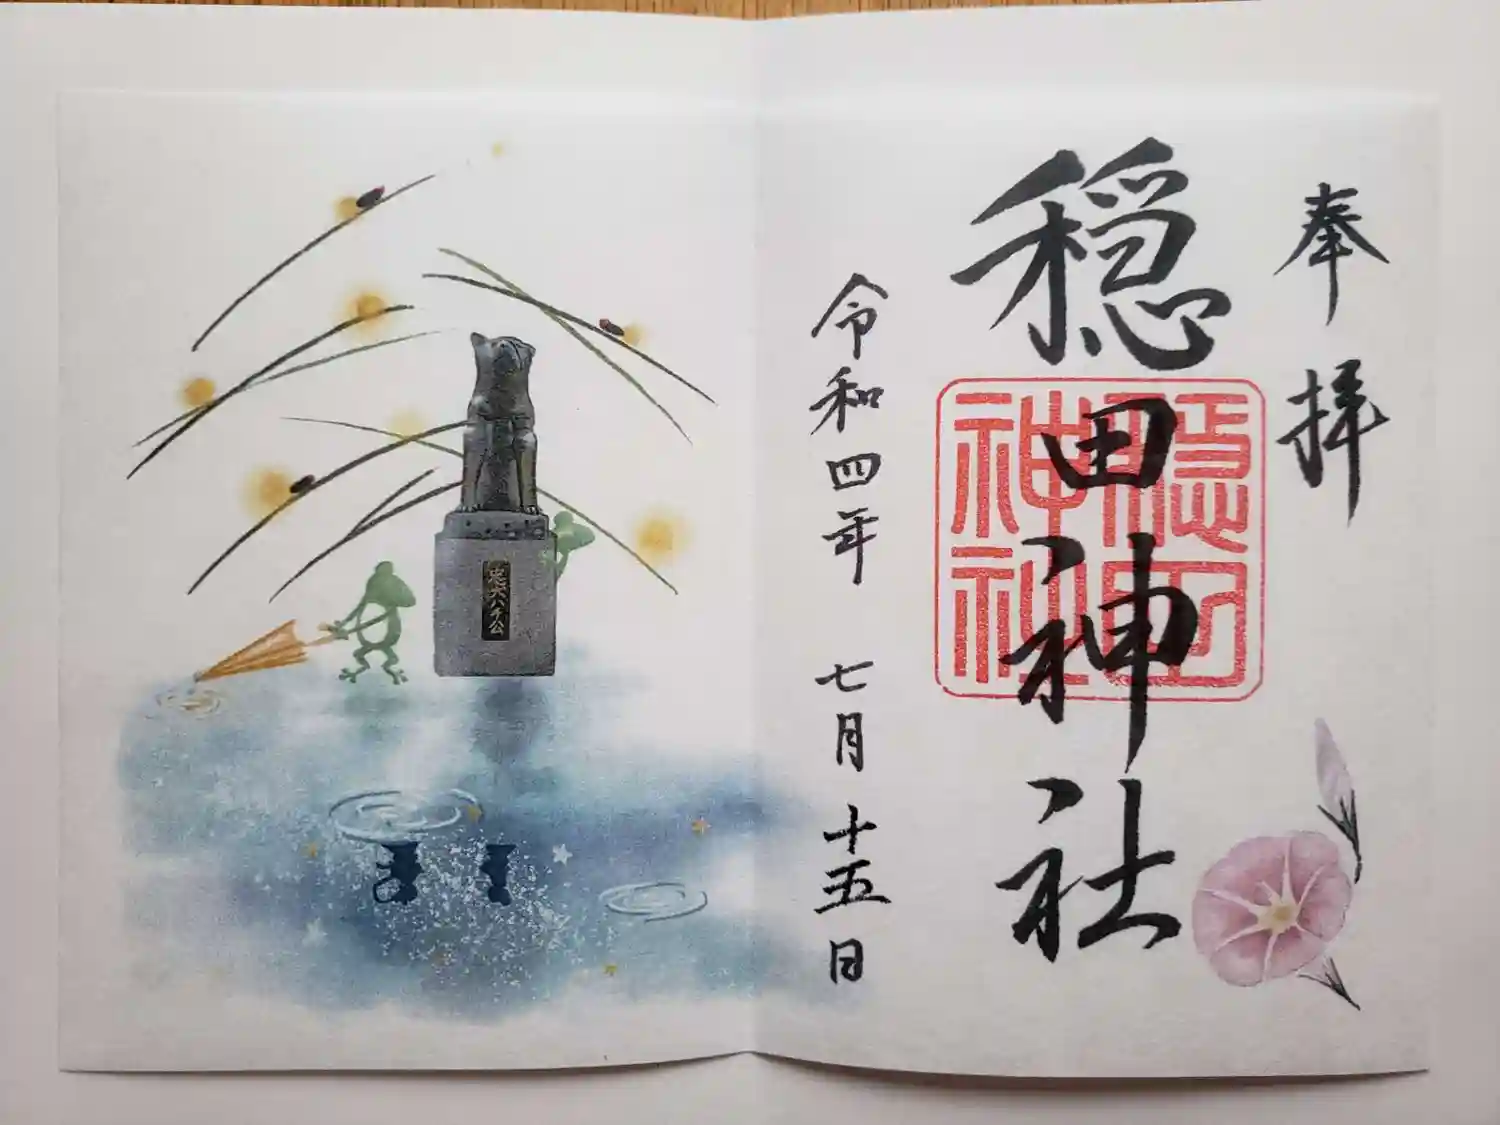 奉拝
穏田神社
穏田
神社
令和四年 七月 十五日
忠犬ハチ公